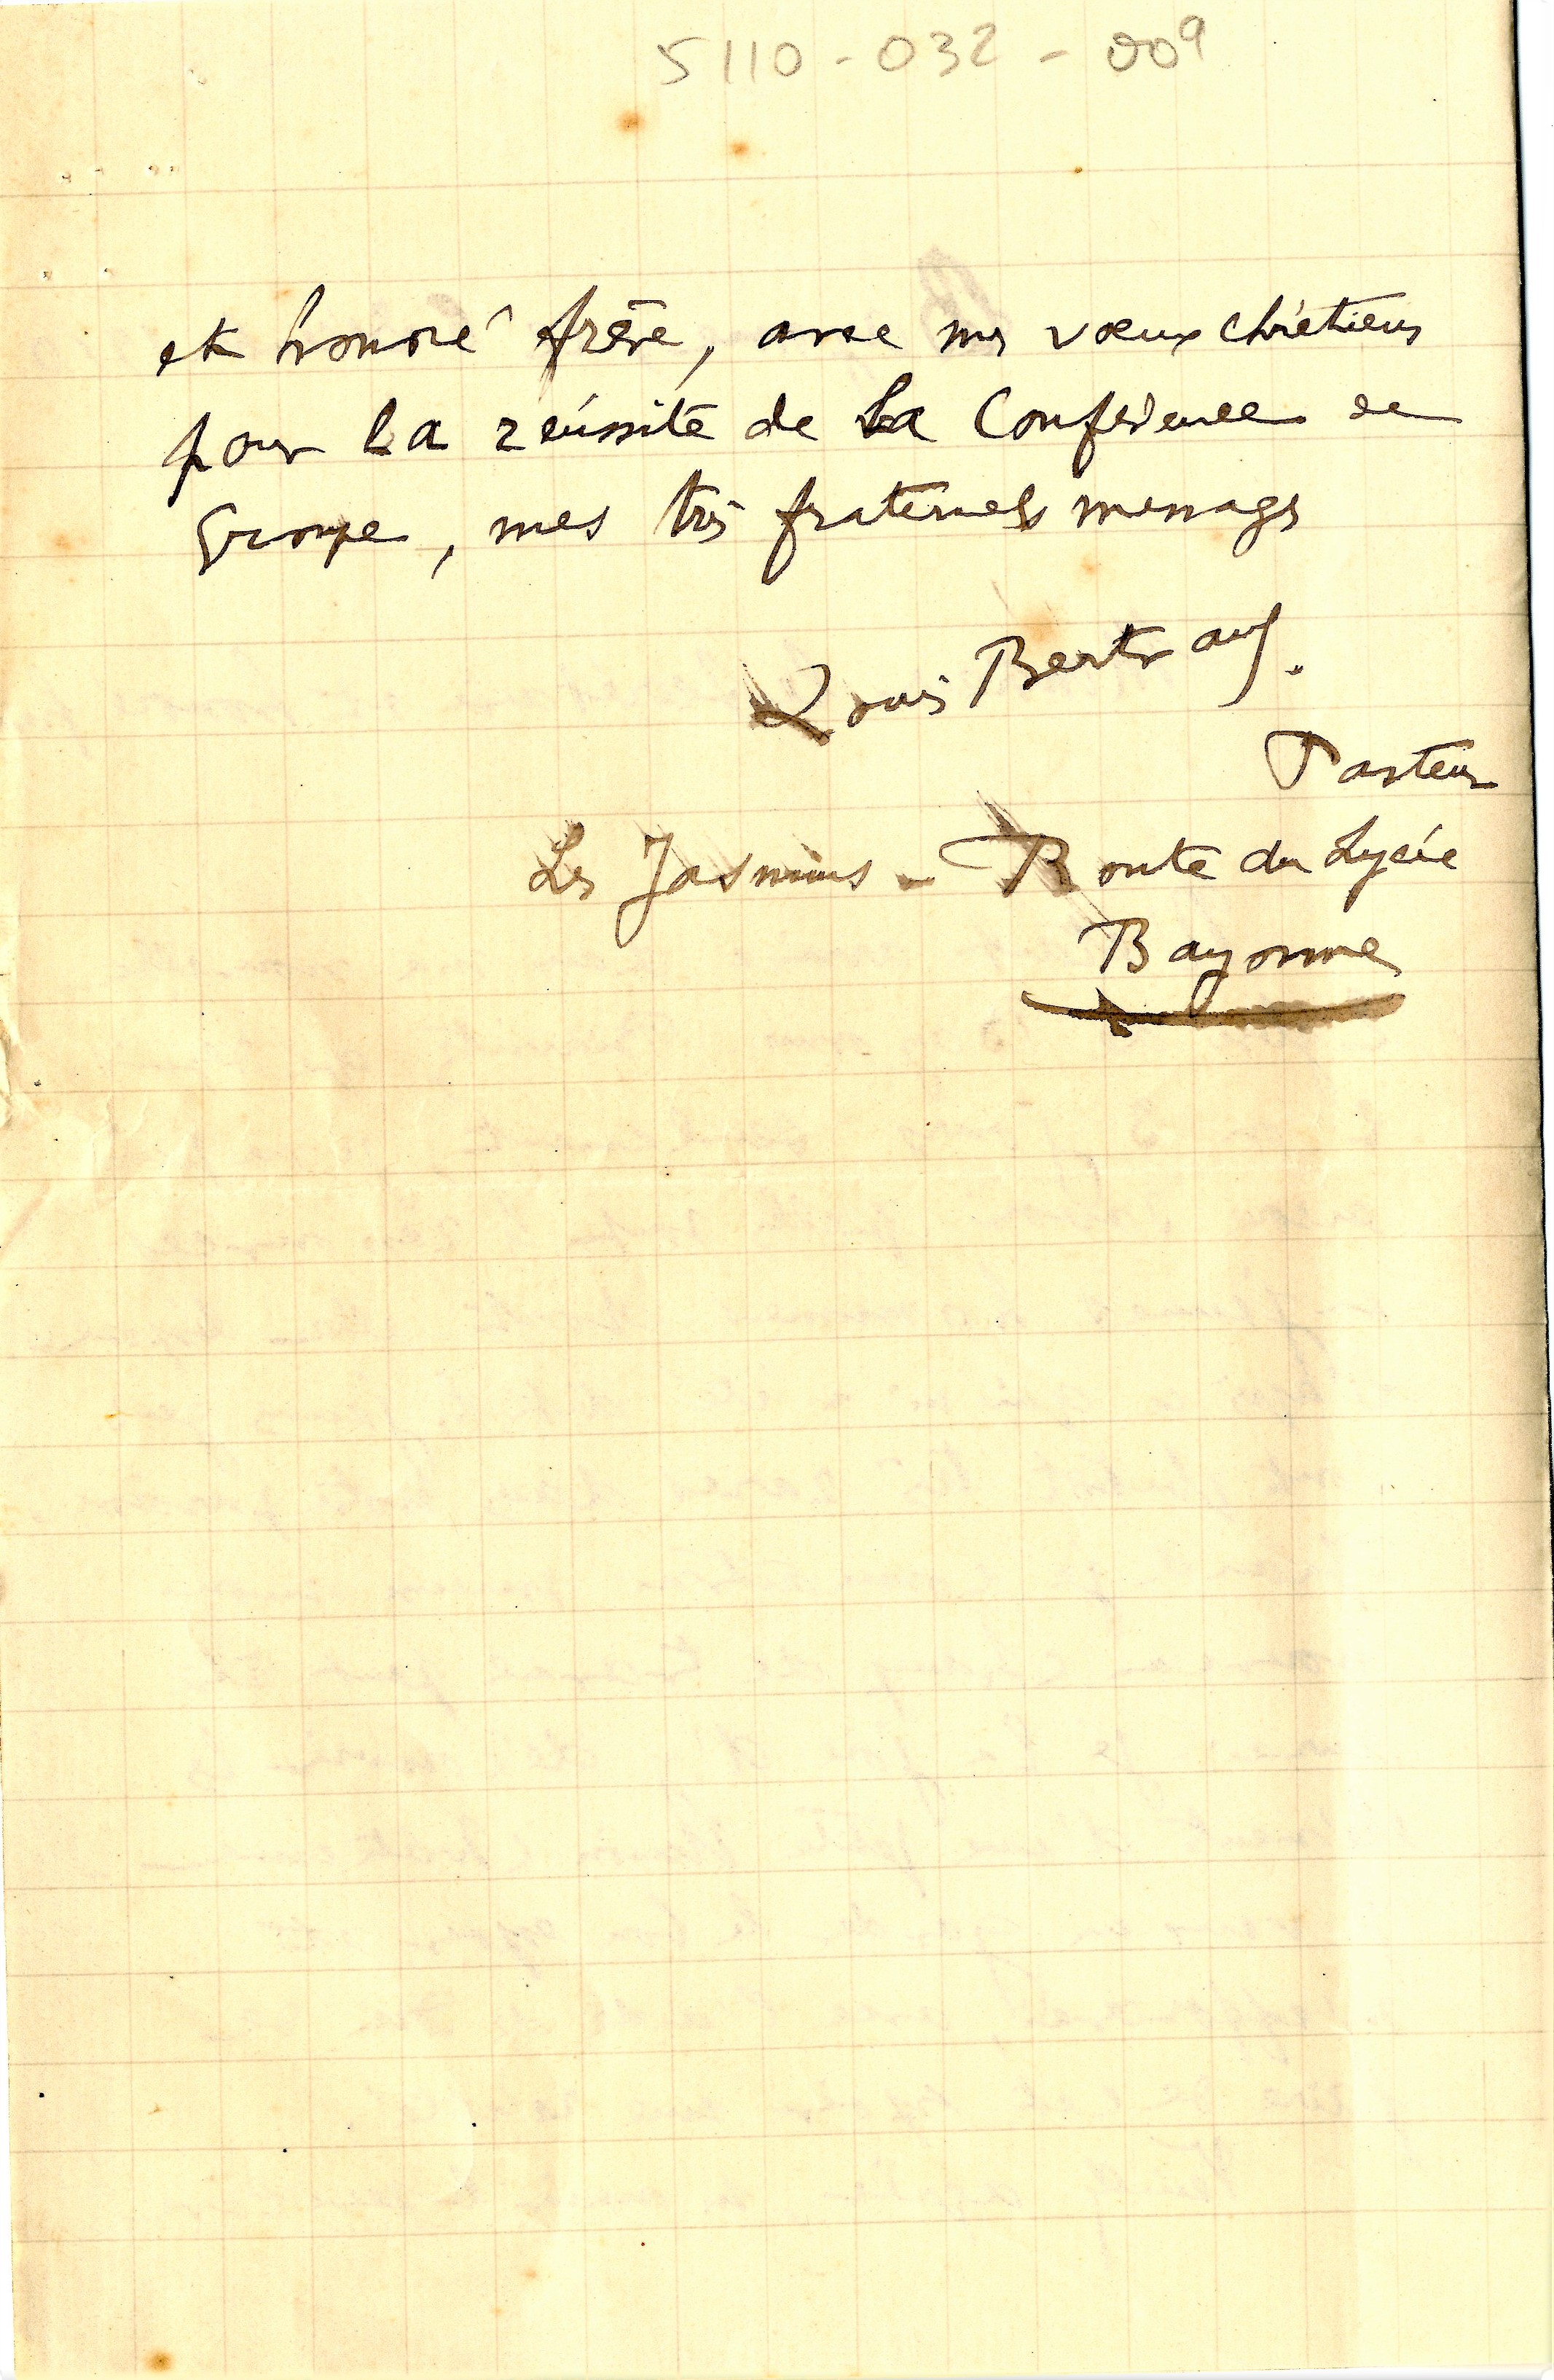 5110-032-009
et honoré frère, avec mes vœux chrétiens
pour la réussite de la Conférence de
Groupe, mes très fraternels messages
Louis Bertrand.
Pasteur
Les Jasmins - Route du Lycée
Bayonne